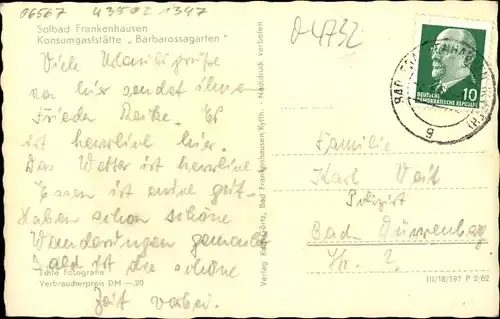 06567 43502 1347
Solbad Frankenhausen
Konsumgaststätte „Barbarossagarten"
D-4732
Viele Urlaubsgrüße
von hier sendet Ihnen
Frieda Es
ist herrlich hier.
Das Wetter ist herrlich
Essen ist gut
Haben schon schöne
Wanderungen gemacht
bald ist die schöne
Zeit vorbei.
Echte Fotografie
Verbraucherpreis DM —.20
Verlag Görtz, Bad Frankenhausen/Kyffh. · Nachdruck verboten
10
DEUTSCHE
DEMOKRATISCHE REPUBLIK
BAD
g
Familie
Karl Voit
Polizist
Bad Dürrenberg
Nr. 2
III/18/197 P 2/62